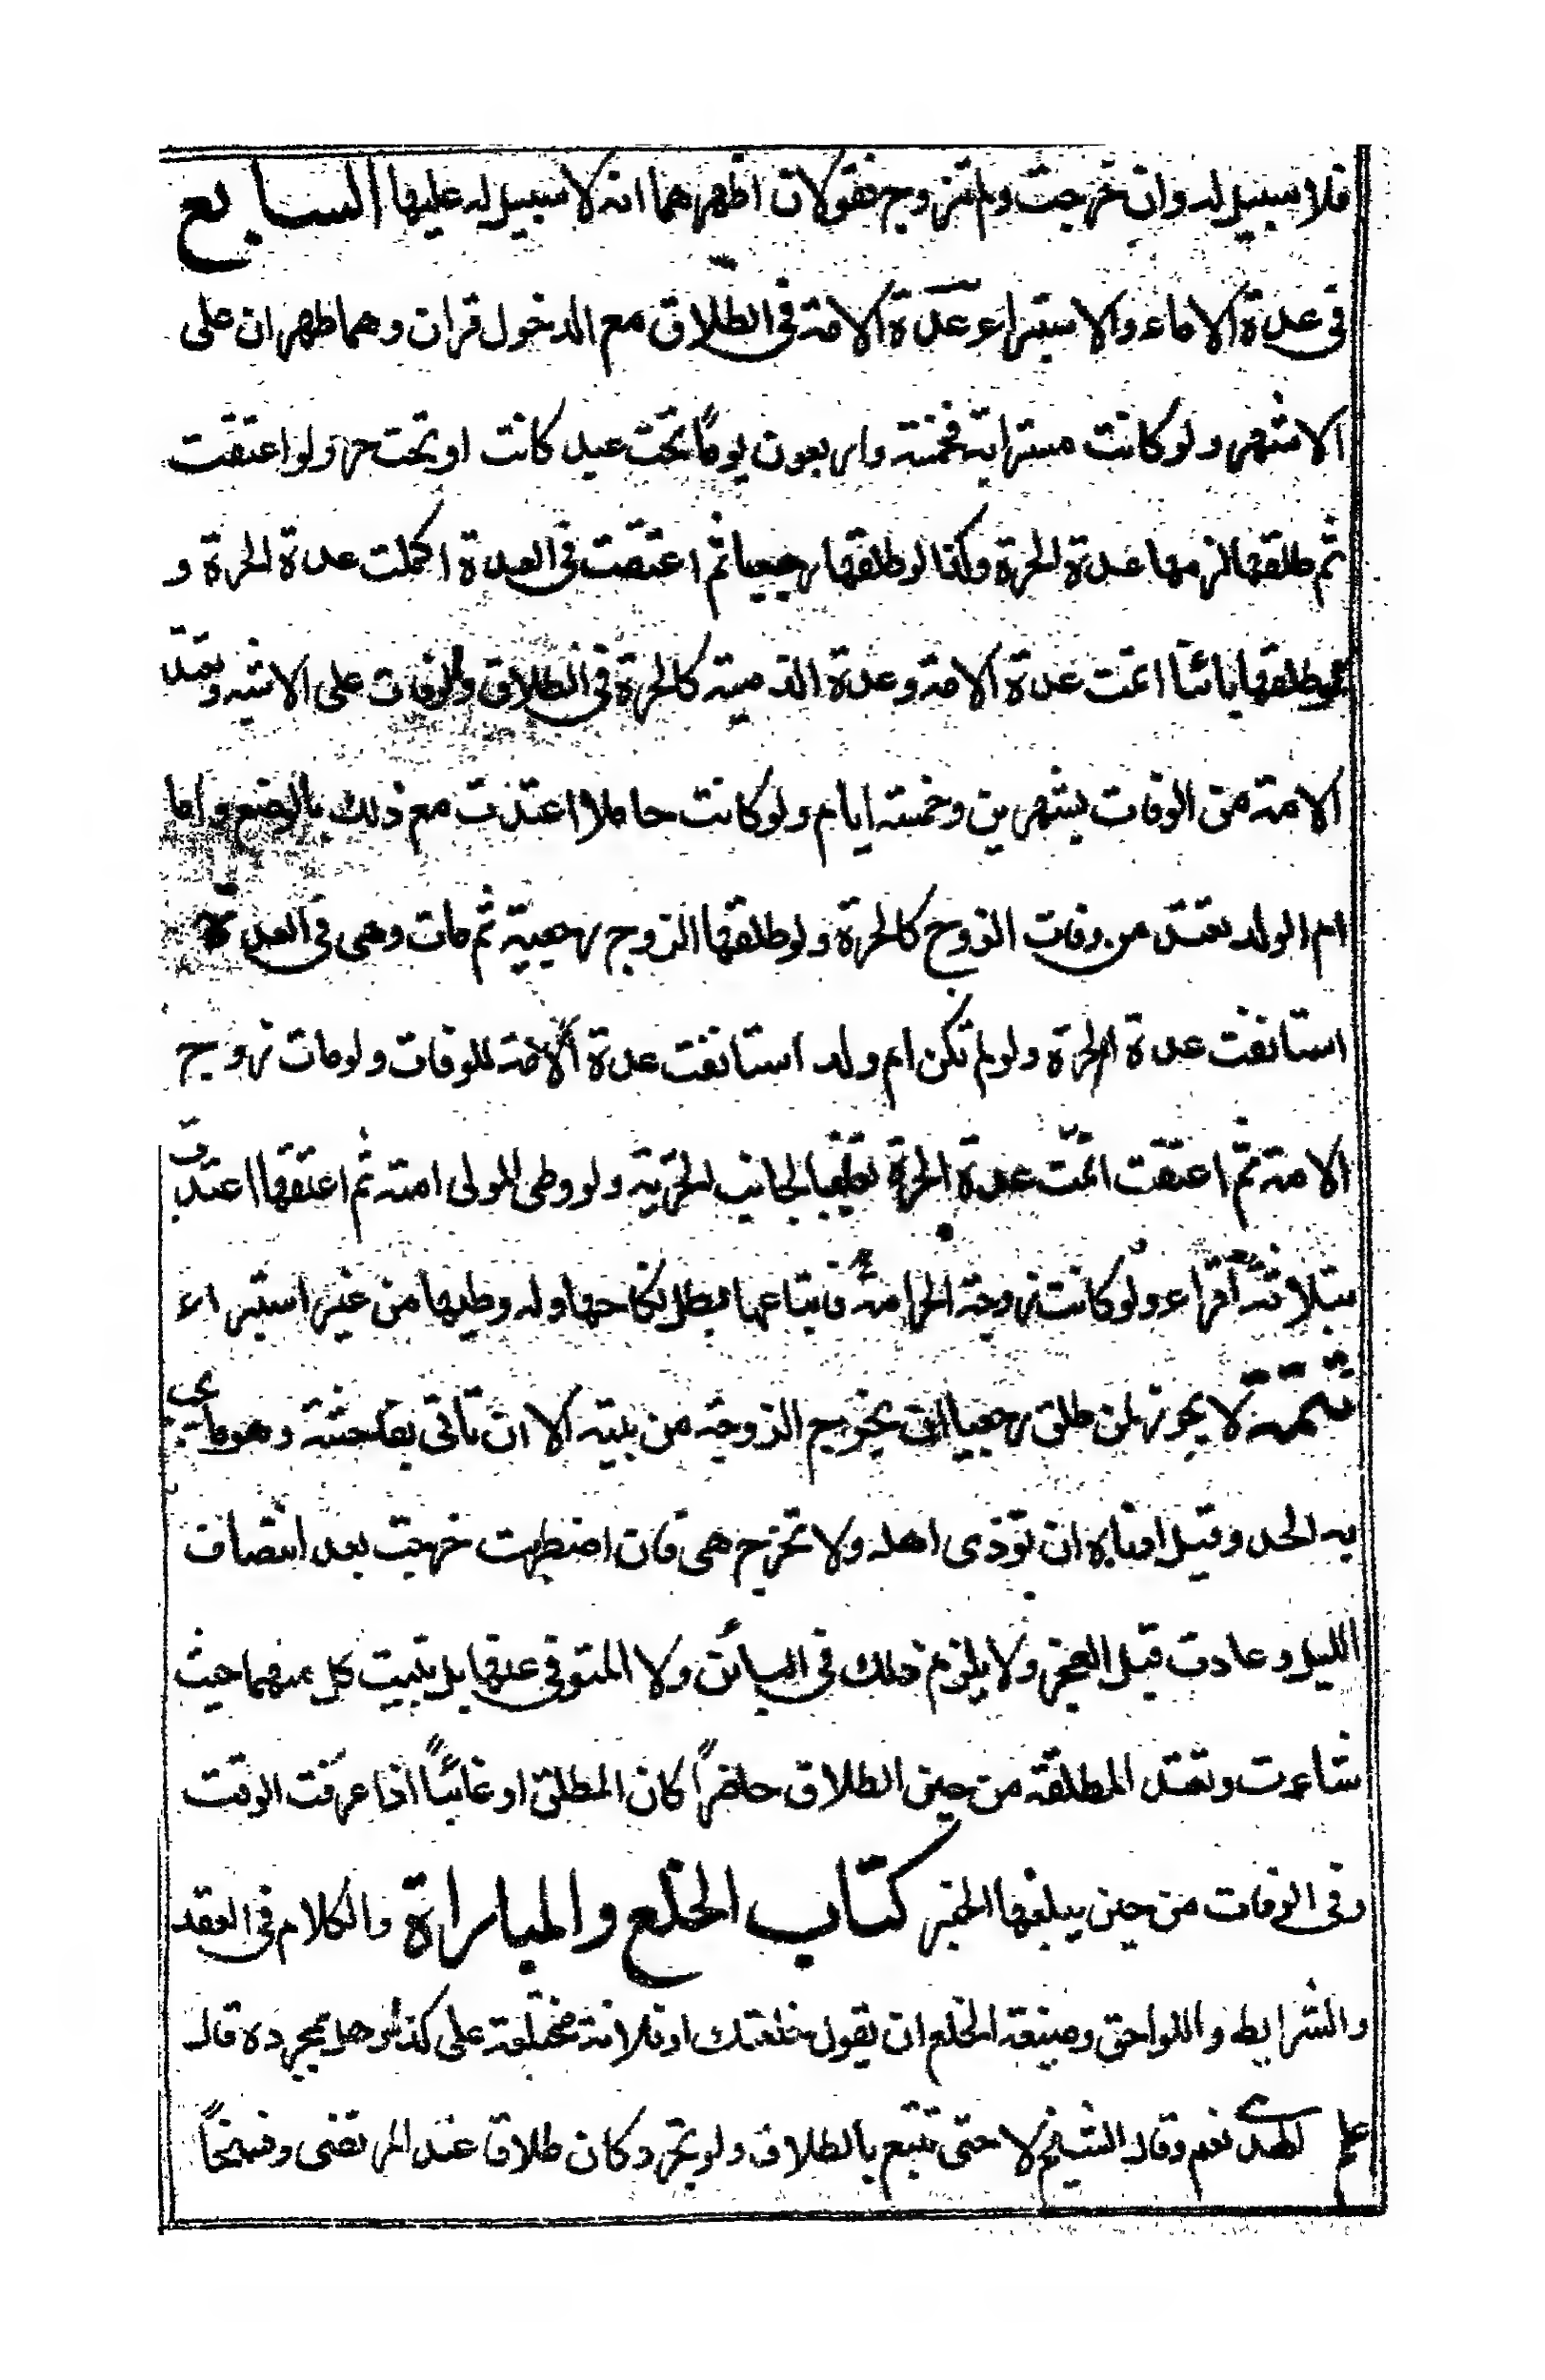 فلا سبيل له وان خرجت ولم تتزوج فقولان اظهرهما انه لا سبيل له عليها السابع
فى عدة الاماء والاستبراء عدة الامة فى الطلاق مع الدخول قرآن وهما طهران على
الاشهر ولو كانت مسترابة فخمسة واربعون يوماً تحت عبد كانت او تحت حر ولو اعتقت
ثم طلقها لزمها عدة الحرة وكذا لو طلقها رجعيا ثم اعتقت فى العدة اكملت عدة الحرة و
لو طلقها بائناً اتمت عدة الامة وعدة الذمية كالحرة فى الطلاق والوفات على الاشبه وتعتد
الامة من الوفات بشهرين وخمسة ايام ولو كانت حاملا اعتدت مع ذلك بالوضع واما
ام الولد تعتد من وفات الزوج كالحرة ولو طلقها الزوج رجعية ثم مات وهى فى العدة
استانفت عدة الحرة ولو لم تكن ام ولد استانفت عدة الامة للوفات ولو مات زوج
الامة ثم اعتقت اتمت عدة الحرة تغليبا لجانب الحرية ولو وطى المولى امته ثم اعتقها اعتدت
بثلاثة أقراء ولو كانت زوجة الحر امة فابتاعها بطل نكاحها وله وطيها من غير استبراء
تتمة لا يجوز لمن طلق رجعيا ان يخرج الزوجة من بيته الا ان تاتى بفاحشة وهو ما يجب
به الحد وقيل ادناه ان توذى اهله ولا تخرج هى فان اضطرت خرجت بعد انتصاف
الليل وعادت قبل الفجر ولا يلزم ذلك فى البائن ولا المتوفى عنها بل تبيت كل منهما حيث
شاءت وتعتد المطلقة من حين الطلاق حاضراً كان المطلق او غائباً اذا عرفت الوقت
وفى الوفات من حين يبلغها الخبر كتاب الخلع والمباراة والكلام فى العقد
والشرايط واللواحق وصيغة الخلع ان يقول خلعتك او فلانة مختلعة على كذا وهل بمجرده قال
علم الهدى نعم وقال الشيخ لا حتى تتبع بالطلاق ولو تجرد كان طلاقا عند المرتضى وفسخاً